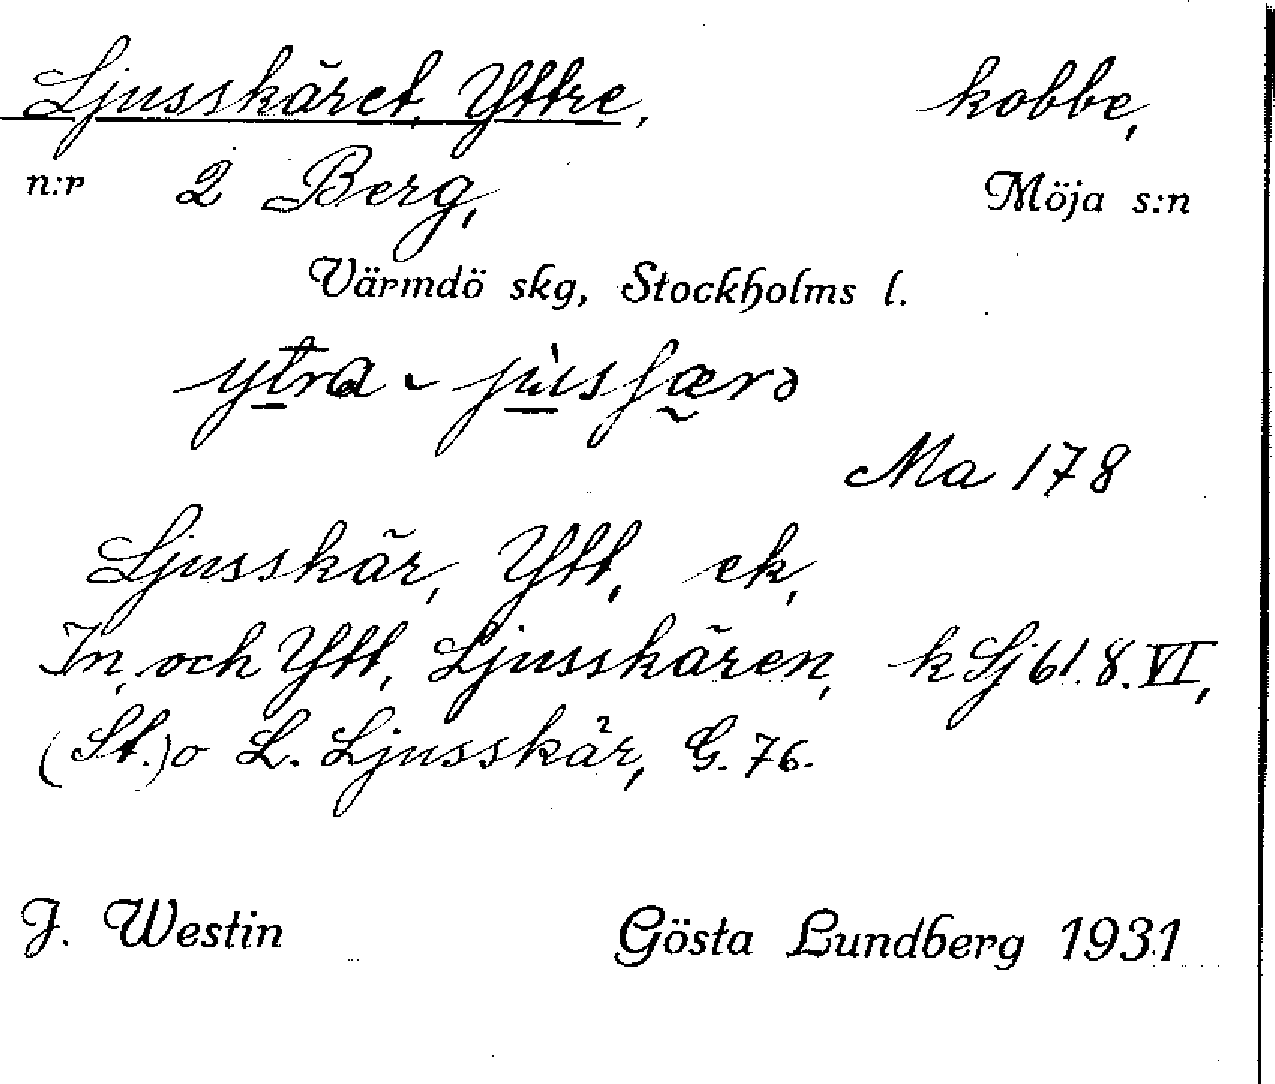 Ljusskäret, Yttre, kobbe,
n:r 2 Berg, Möja s:n
Värmdö skg, Stockholms l.
Ma 178
Ljusskär, Ytt, ek,
In, och Ytt, Ljusskären, k Sj 61.8.VI,
(St.) o L. Ljusskär, G. 76.
J. Westin Gösta Lundberg 1931